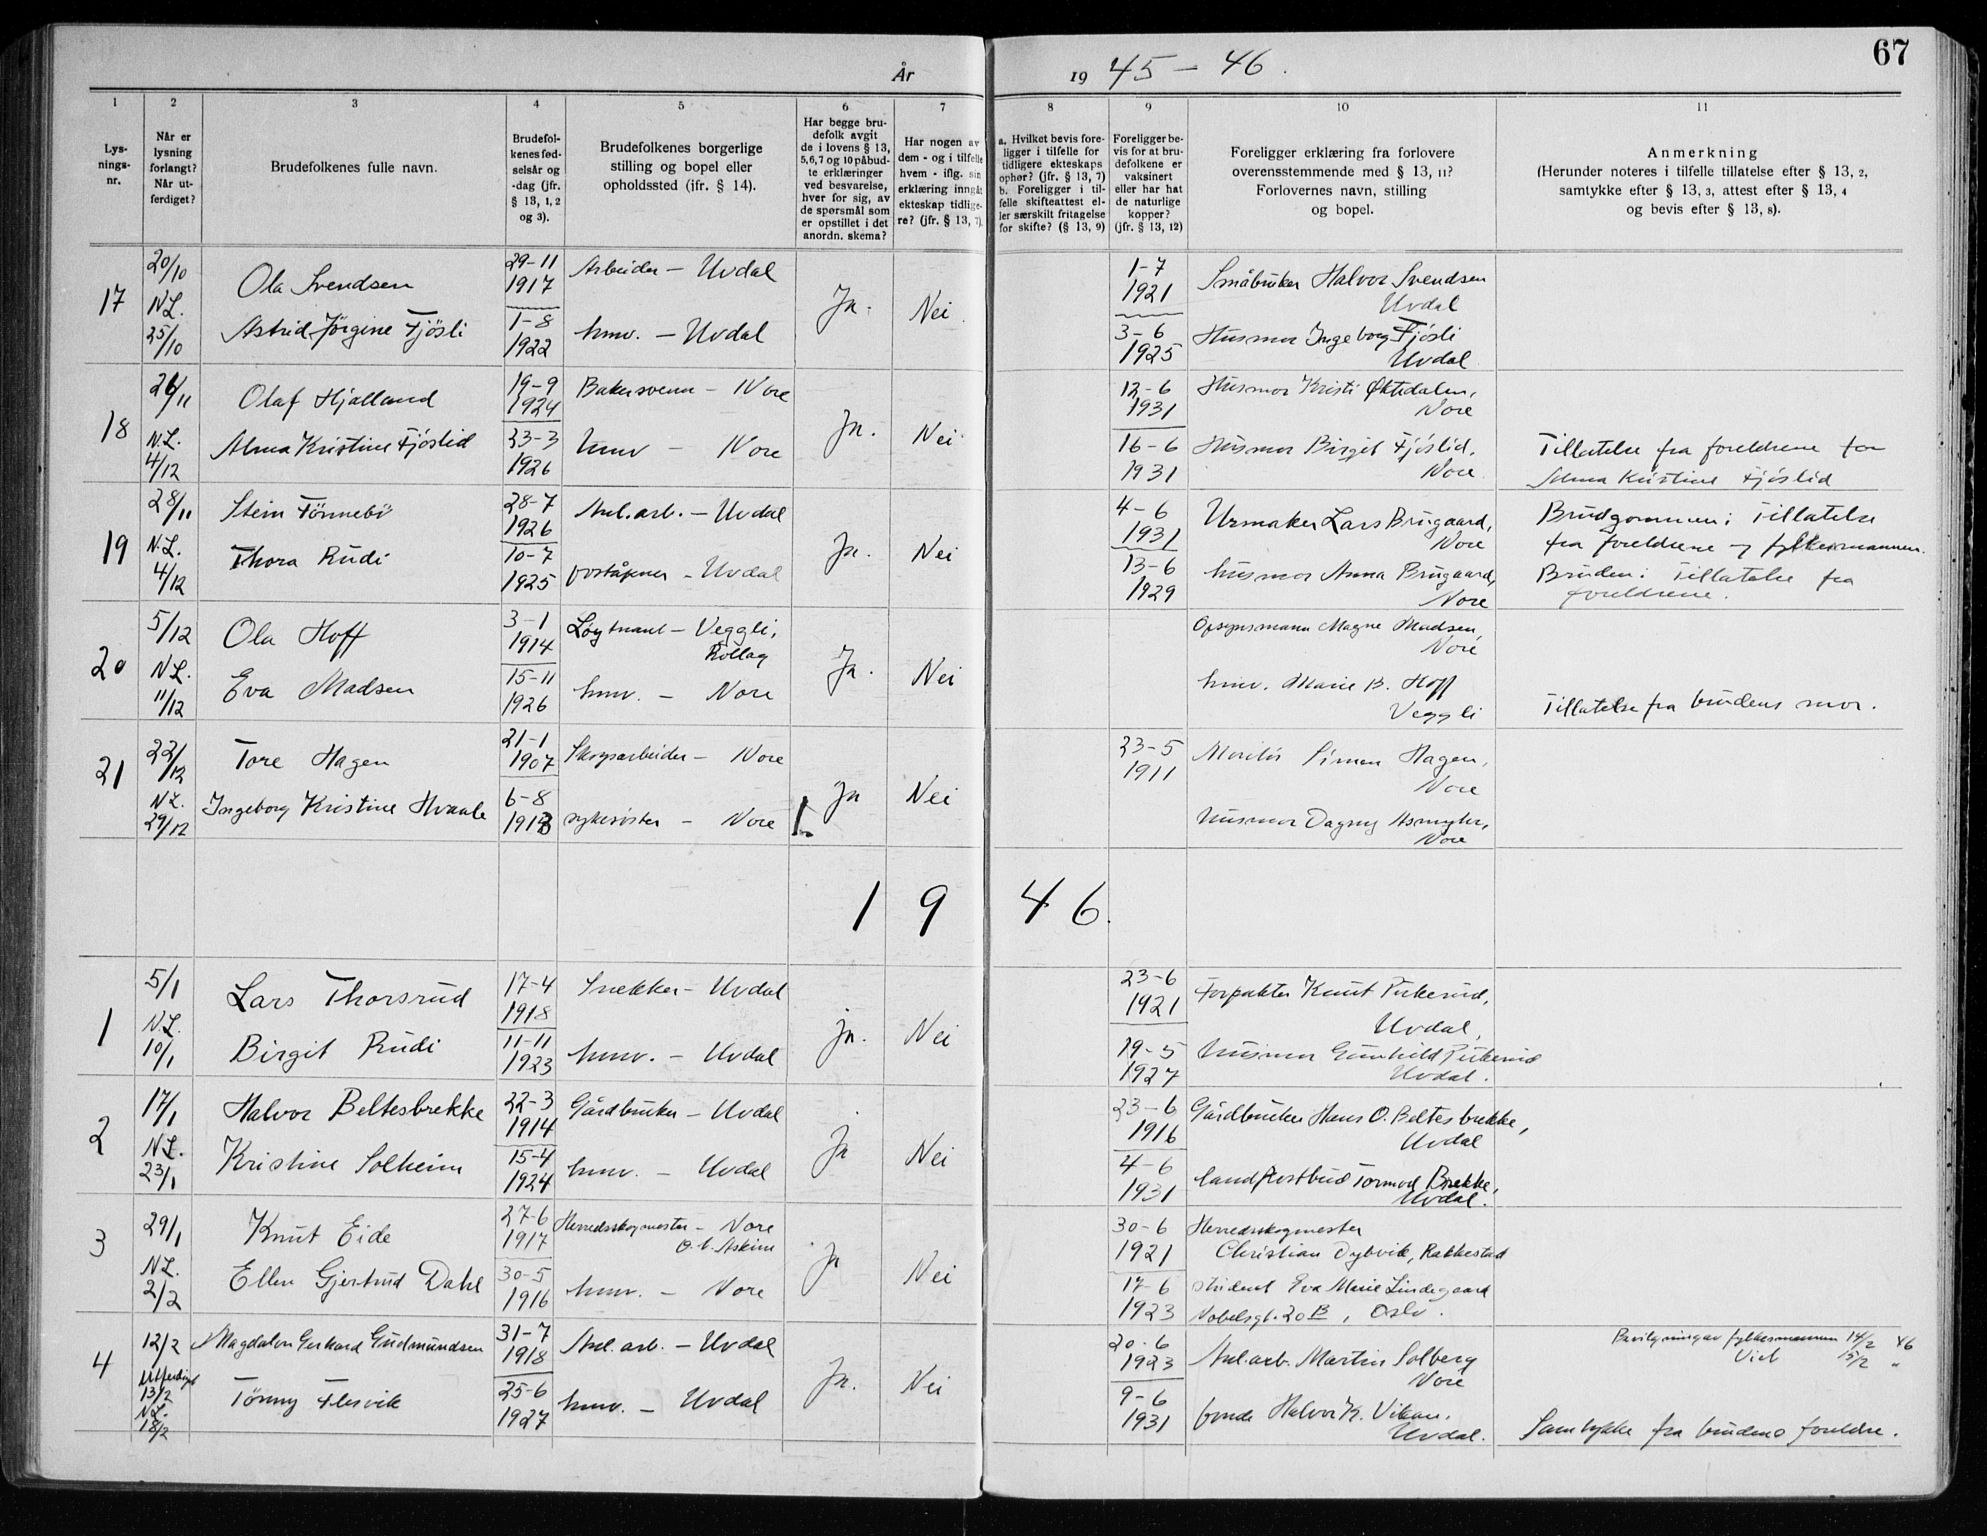 67
År 19 45 – 46.
1 2 3 4 5 6 7 8 9 10 11
Lys-
nings-
nr.
Når er
lysning
forlangt?
Når ut-
ferdiget?
Brudefolkenes fulle navn.
Brudefol-
kenes fød-
selsår og
-dag (jfr.
§ 13, 1, 2
og 3).
Brudefolkenes borgerlige
stilling og bopel eller
opholdssted (ifr. § 14).
Har begge bru-
defolk avgit
de i lovens § 13,
5,6,7 og 10 påbud-
te erklæringer
ved besvarelse,
hver for sig, av
de spørsmål som
er opstillet i det
anordn. skema?
Har nogen av
dem - og i tilfelle
hvem - iflg. sin
erklæring inngåt
ekteskap tidlige-
re? (jfr. § 13, 7)
a. Hvilket bevis fore-
ligger i tilfelle for
tidligere ekteskaps
ophør? (jfr. § 13, 7)
b. Foreligger i til-
felle skifteattest el-
ler særskilt fritagelse
for skifte? (§ 13, 9)
Foreligger be-
vis for at bru-
defolkene er
vaksinert
eller har hat
de naturlige
kopper?
(jfr. § 13, 12)
Foreligger erklæring fra forlovere
overensstemmende med § 13, 11?
Forlovernes navn, stilling
og bopel.
Anmerkning
(Herunder noteres i tilfelle tillatelse efter § 13, 2,
samtykke efter § 13, 3, attest efter § 13, 4
og bevis efter § 13, 8).
17
20/10
N.L.
25/10
Ola Svendsen
Astrid Jørgine Fjösli
29-11
1917
1-8
1922
Arbeider – Uvdal
hmv. – Uvdal
Ja.
Nei.
1-7
1921
3-6
1925
Småbruker Halvor Svendsen
Uvdal
Husmor Ingeborg Fjösli
Uvdal
18
26/11
N.L.
4/12
Olaf Hjalland
Alma Kristine Fjöslid
19-9
1924
23-3
1926
Bakersvenn – Nore
hmv – Nore
Ja.
Nei
12-6
1931
16-6
1931
Husmor Kristi Øktedalen,
Nore
Husmor Birgit Fjöslid,
Nore
Tillatelse fra foreldrene for
Alma Kristine Fjöslid
19
28/11
N.L.
4/12
Stein Tönnebö
Thora Rudi
28-7
1926
10-7
1925
Anl.arb. – Uvdal
poståpner – Uvdal
Ja.
Nei
4-6
1931
13-6
1929
Urmaker Lars Brugaard,
Nore
husmor Anna Brugaard,
Nore
Brudgommen: Tillatelse
fra foreldrene og fylkesmannen.
Bruden: Tillatelse fra
foreldrene.
20
5/12
N.L.
11/12
Ola Hoff
Eva Madsen
3-1
1914
15-11
1926
Løytnant – Veggli,
Rollag
hmv. – Nore
Ja.
Nei
Opsynsmann Magne Madsen,
Nore
hmv. Marie B. Hoff
Veggli
Tillatelse fra brudens mor.
21
22/12
N.L.
29/12
Tore Hagen
Ingeborg Kristine Hvaale
21-1
1907
6-8
1913
Skogsarbeider – Nore
sykesöster – Nore
Ja
Nei
23-5
1911
Simen Hagen,
Nore
Husmor Dagny
Nore
1946.
1
5/1
N.L.
10/1
Lars Thorsrud
Birgit Rudi
17-4
1918
11-11
1923
Snekker – Uvdal
hmv. – Uvdal
Ja.
Nei
23-6
1921
19-5
1927
Forpakter Knut Pikerud,
Uvdal,
Husmor Gunhild Pikerud
Uvdal.
2
17/1
N.L.
23/1
Halvor Beltesbrekke
Kristine Solheim
22-3
1914
15-4
1924
Gårdbruker – Uvdal
hmv. – Uvdal
Ja
Nei
23-6
1916
4-6
1931
Gårdbruker Hans O. Beltesbrekke,
Uvdal
landpostbud Tormod Brekke,
Uvdal.
3
29/1
N.L.
2/2
Knut Eide
Ellen Gjertrud Dahl
27-6
1917
30-5
1916
Herredsskogmester – Nore
Askim
hmv. – Nore
Ja
Nei
30-6
1921
17-6
1923
Herredsskogmester
Christian Dybvik, Rakkestad
student Eva Marie Lindegaard
Nobelsgt. 20 B, Oslo.
4
12/2
Utferdiget
13/2
N.L.
18/2
Magdalon Gerhard Gudmundsen
Tönny Flesvik
31-7
1918
25-6
1927
Anl.arb. – Uvdal
hmv. – Uvdal
Ja.
Nei
20-6
1923
9-6
1931
Anl.arb. Martin Solberg
Nore
bonde Halvor K. Vikan,
Uvdal.
Bevilgning av fylkesmannen 14/2 46
15/2 "
Samtykke fra brudens foreldre.